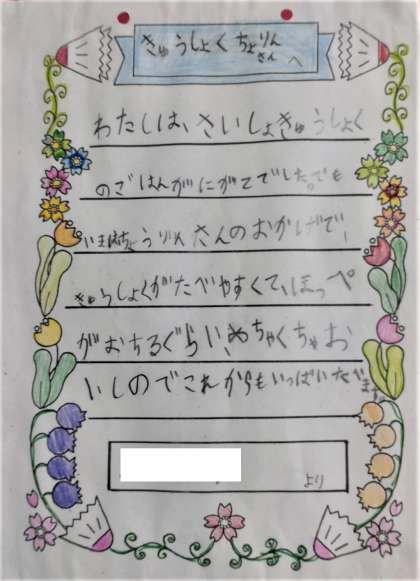 きゅうしょくちょりん
さんへ
わたしは、さいしょきゅうしょく
のごはんがにがてでした。でも
いまはちょうりんさんのおかげで、
きゅうしょくがたべやすくて、ほっぺ
がおちるぐらい、めちゃくちゃお
いしのでこれからもいっぱいたべます。
より